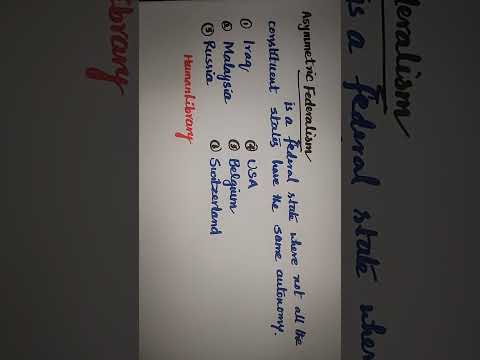 Asymmetric Federalism
is a federal state where not all the
constituent states have the same autonomy.
① Iraq ④ USA
② Malaysia ⑤ Belgium
③ Russia ⑥ Switzerland
HumanLibrary
deralism
is a federal state whe
Library